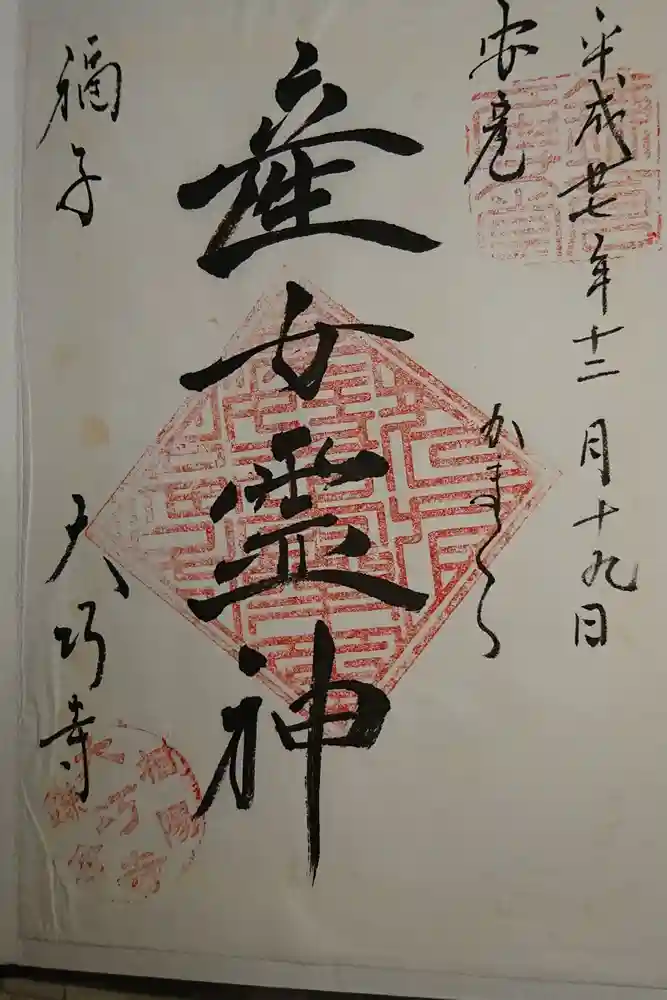 平成廿七年十二月十九日
安産
かまくら
産女霊神
福子
大巧寺
相陽
大巧寺